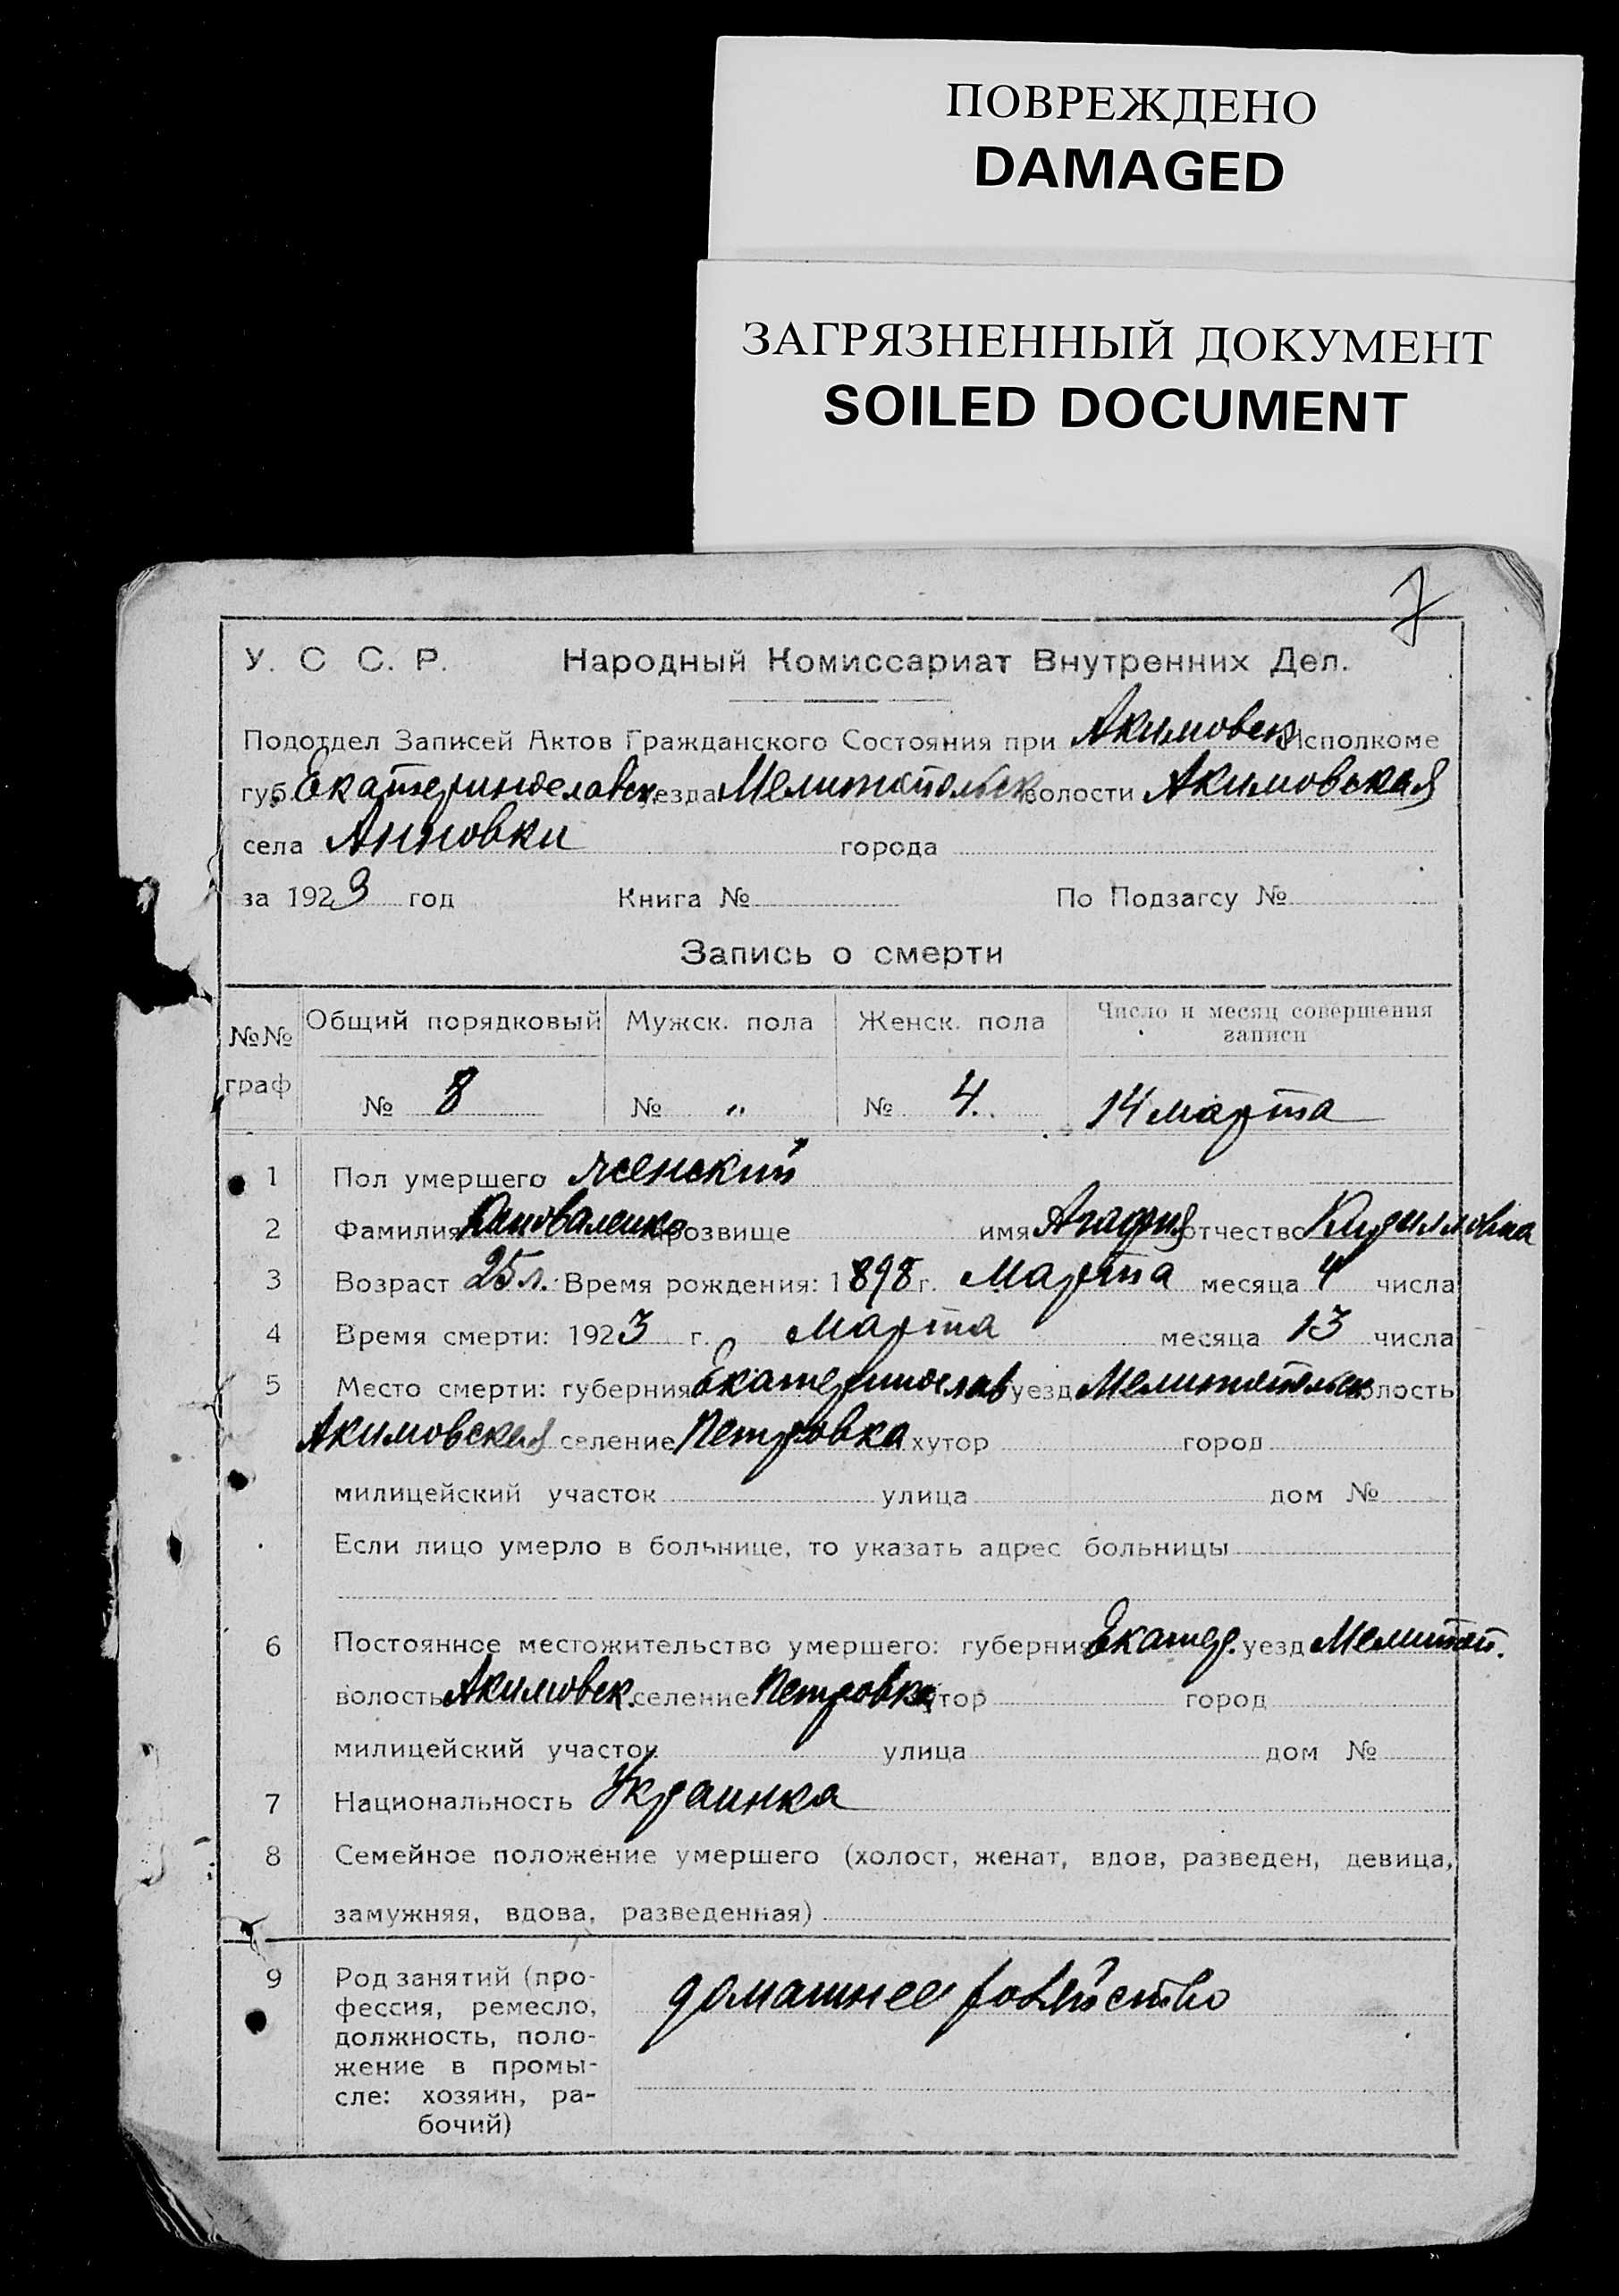 ПОВРЕЖДЕНО
DAMAGED
ЗАГРЯЗНЕННЫЙ ДОКУМЕНТ
SOILED DOCUMENT
7
У. С С. Р. Народный Комиссариат Внутренних Дел.
Подотдел Записей Актов Гражданского Состояния при Акимовск Исполкоме
губ. Екатеринославск уезда Мелитопольск волости Акимовская
села Анновки города
за 1923 год Книга № По Подзагсу №
Запись о смерти
№№ граф Общий порядковый Мужск. пола Женск. пола Число и месяц совершения записи
№ 8 № „ № 4. 14 марта
1 Пол умершего женский
2 Фамилия Коноваленко прозвище имя Агафия отчество Кирилловна
3 Возраст 25 л. Время рождения: 1898 г. Марта месяца 4 числа
4 Время смерти: 1923 г. Марта месяца 13 числа
5 Место смерти: губерния Екатеринослав уезд Мелитопольск волость
Акимовская селение Петровка хутор город
милицейский участок улица дом №
Если лицо умерло в больнице, то указать адрес больницы
6 Постоянное местожительство умершего: губерния Екатер. уезд Мелитоп.
волость Акимовск. селение Петровка хутор город
милицейский участок улица дом №
7 Национальность Украинка
8 Семейное положение умершего (холост, женат, вдов, разведен, девица,
замужняя, вдова, разведенная)
9 Род занятий (про-
фессия, ремесло,
должность, поло-
жение в промы-
сле: хозяин, ра-
бочий)
домашнее хозяйство